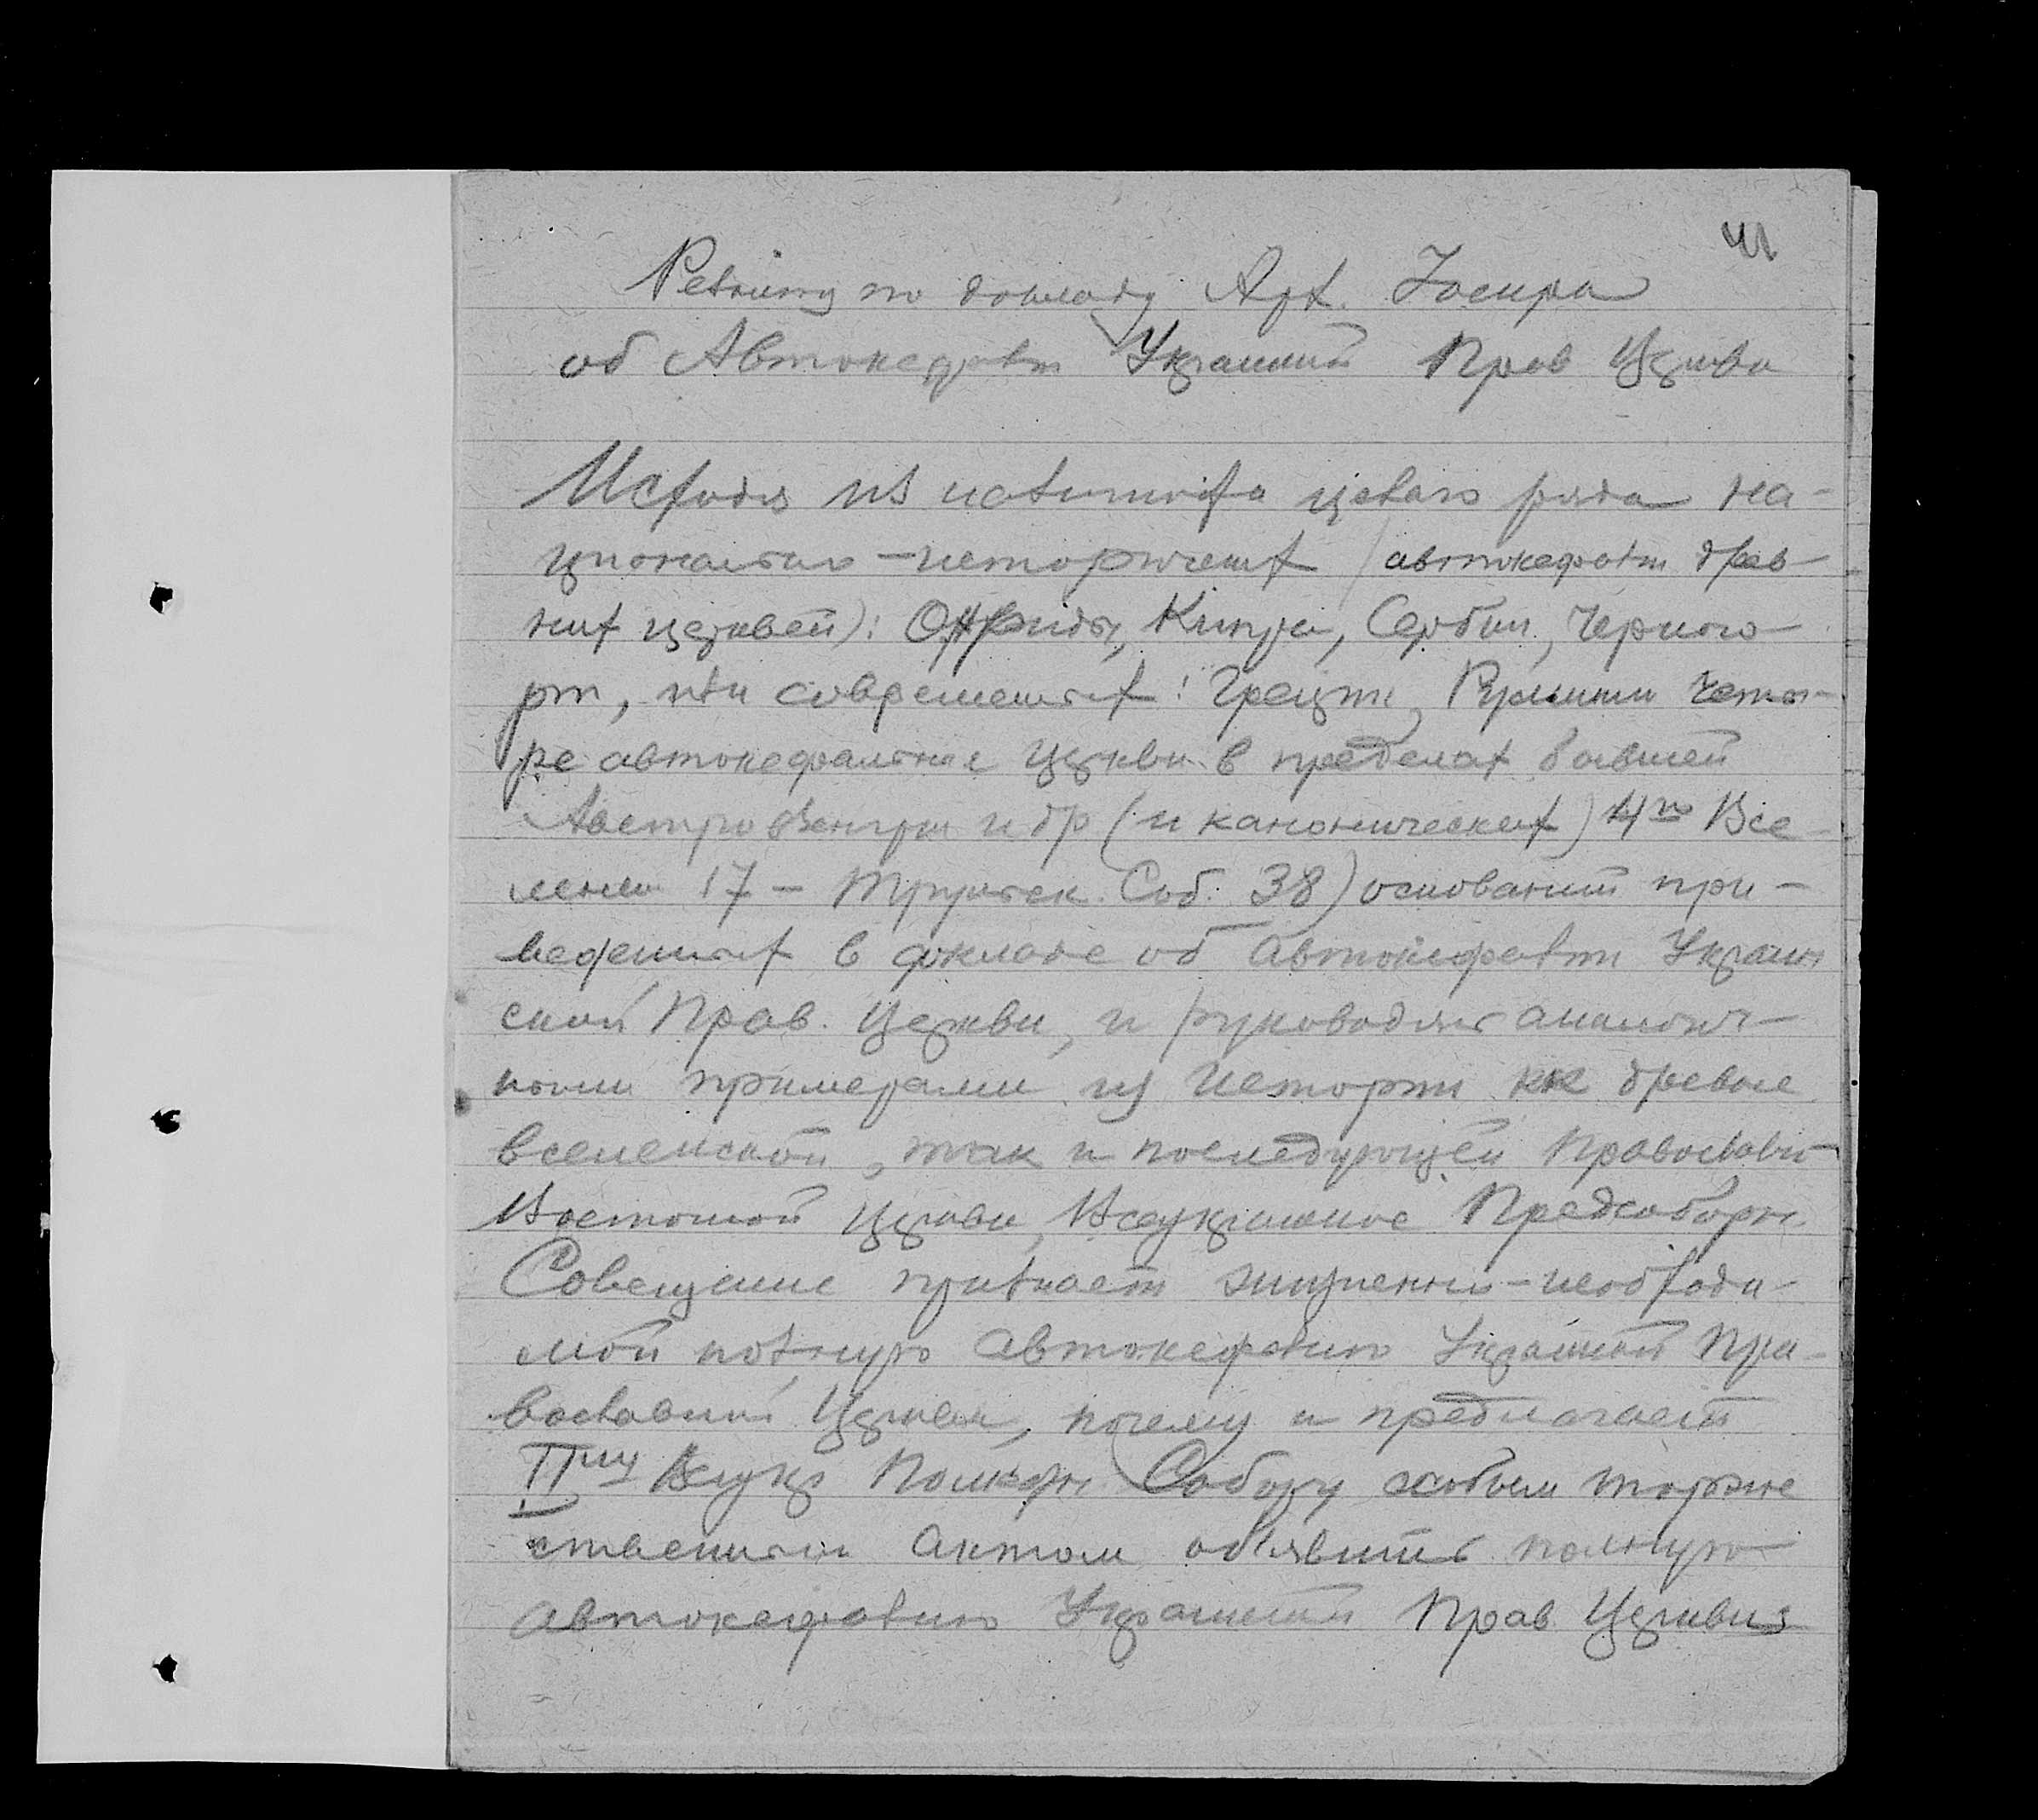 41
Резолюц по докладу Арх. Іосифа
об Автокефалии Украинской Прав Церкви
Исходя из каноничных целаго ряда на-
ционально-исторических (автокефалии древ-
них церквей): Охриды, Кипра, Сербии, Черного-
рии, или современных: Греции, Румынии четы-
ре автокефальныя Церкви в пределах бывшей
Австровенгрии и др (и канонических) 4го Все
ленск 17 - Трульск. Соб. 38) оснований при-
веденных в докладе об автокефалии Украин
ской Прав. Церкви, и руководясь аналогич-
ными примерами из истории как древне
вселенской, так и последующей Православн
Восточной Церкви, Всеукраинское Предсоборн.
Совещание признает жизненно-необходи-
мой полную автокефалию Украинской Пра-
вославной Церкви, почему и предлагает
IIму Всеукр Поместн Собору особым торже
ственным актом объявить полную
автокефалию Украинской Прав Церкви